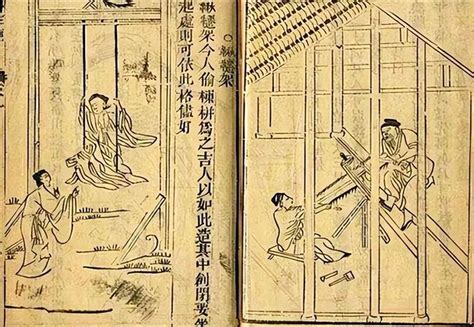 ○鞦韆架
鞦韆架今人偷棟栟爲之吉人以如此造其中創閑要坐
起處則可依此格儘好